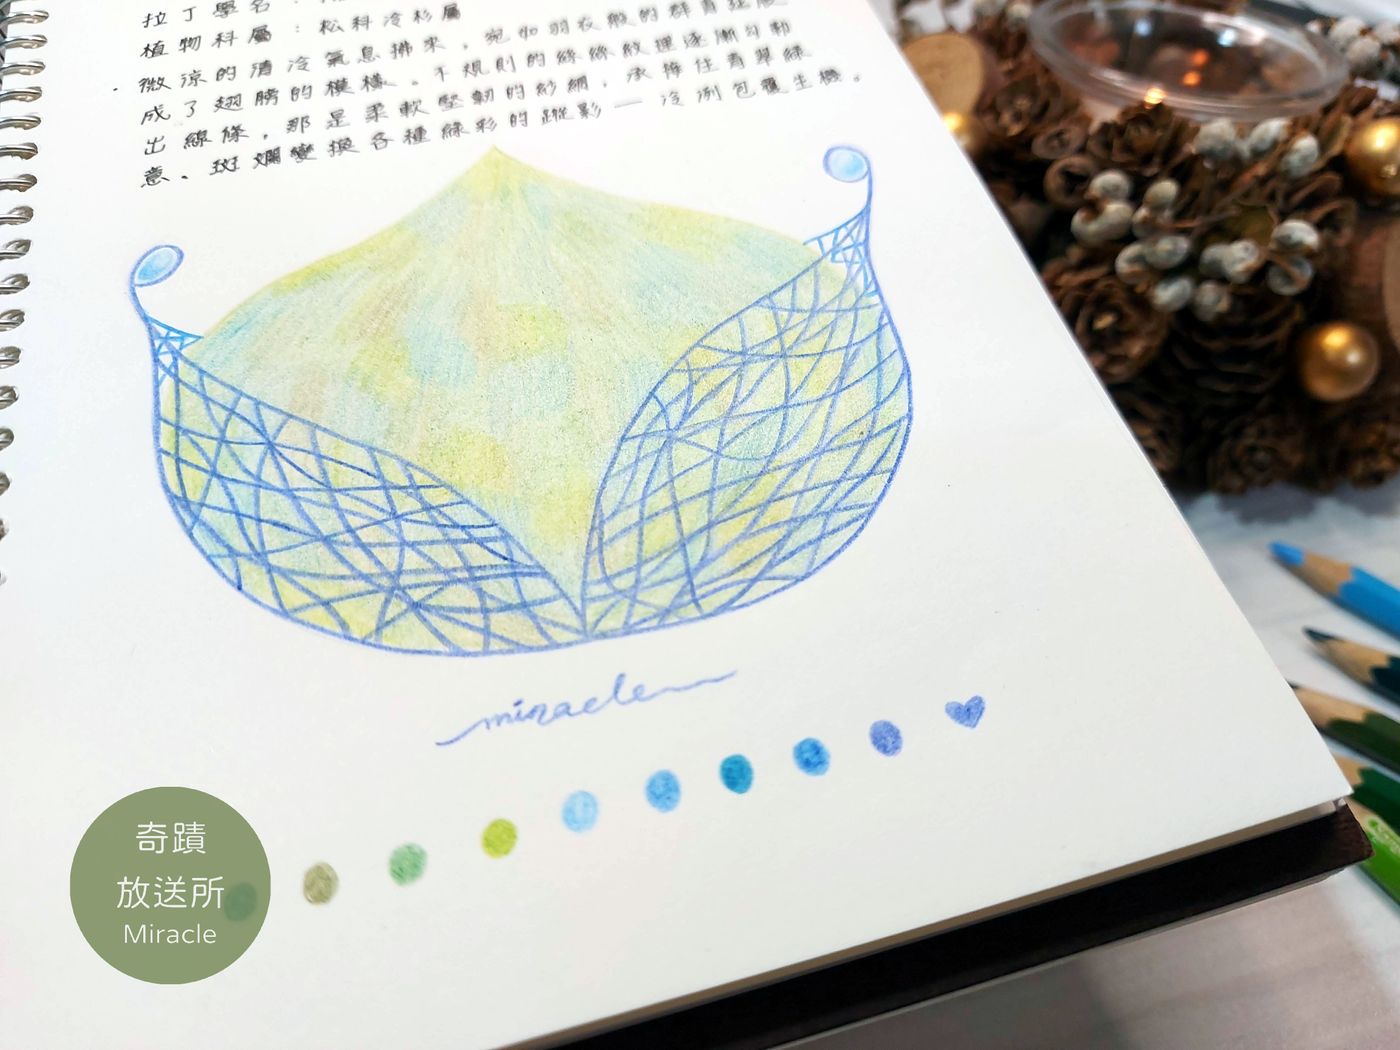 拉丁學名：
植物科屬：松科冷杉屬
微涼的清冷氣息拂來，宛如羽衣般的群青
成了翅膀的模樣。不規則的絲絲紋理逐漸勾勒
出線條，那是柔軟堅韌的紗網，承捧住青翠綠
意。斑斕變換各種綠彩的蹤影—冷冽包覆生機。
miracle
奇蹟
放送所
Miracle